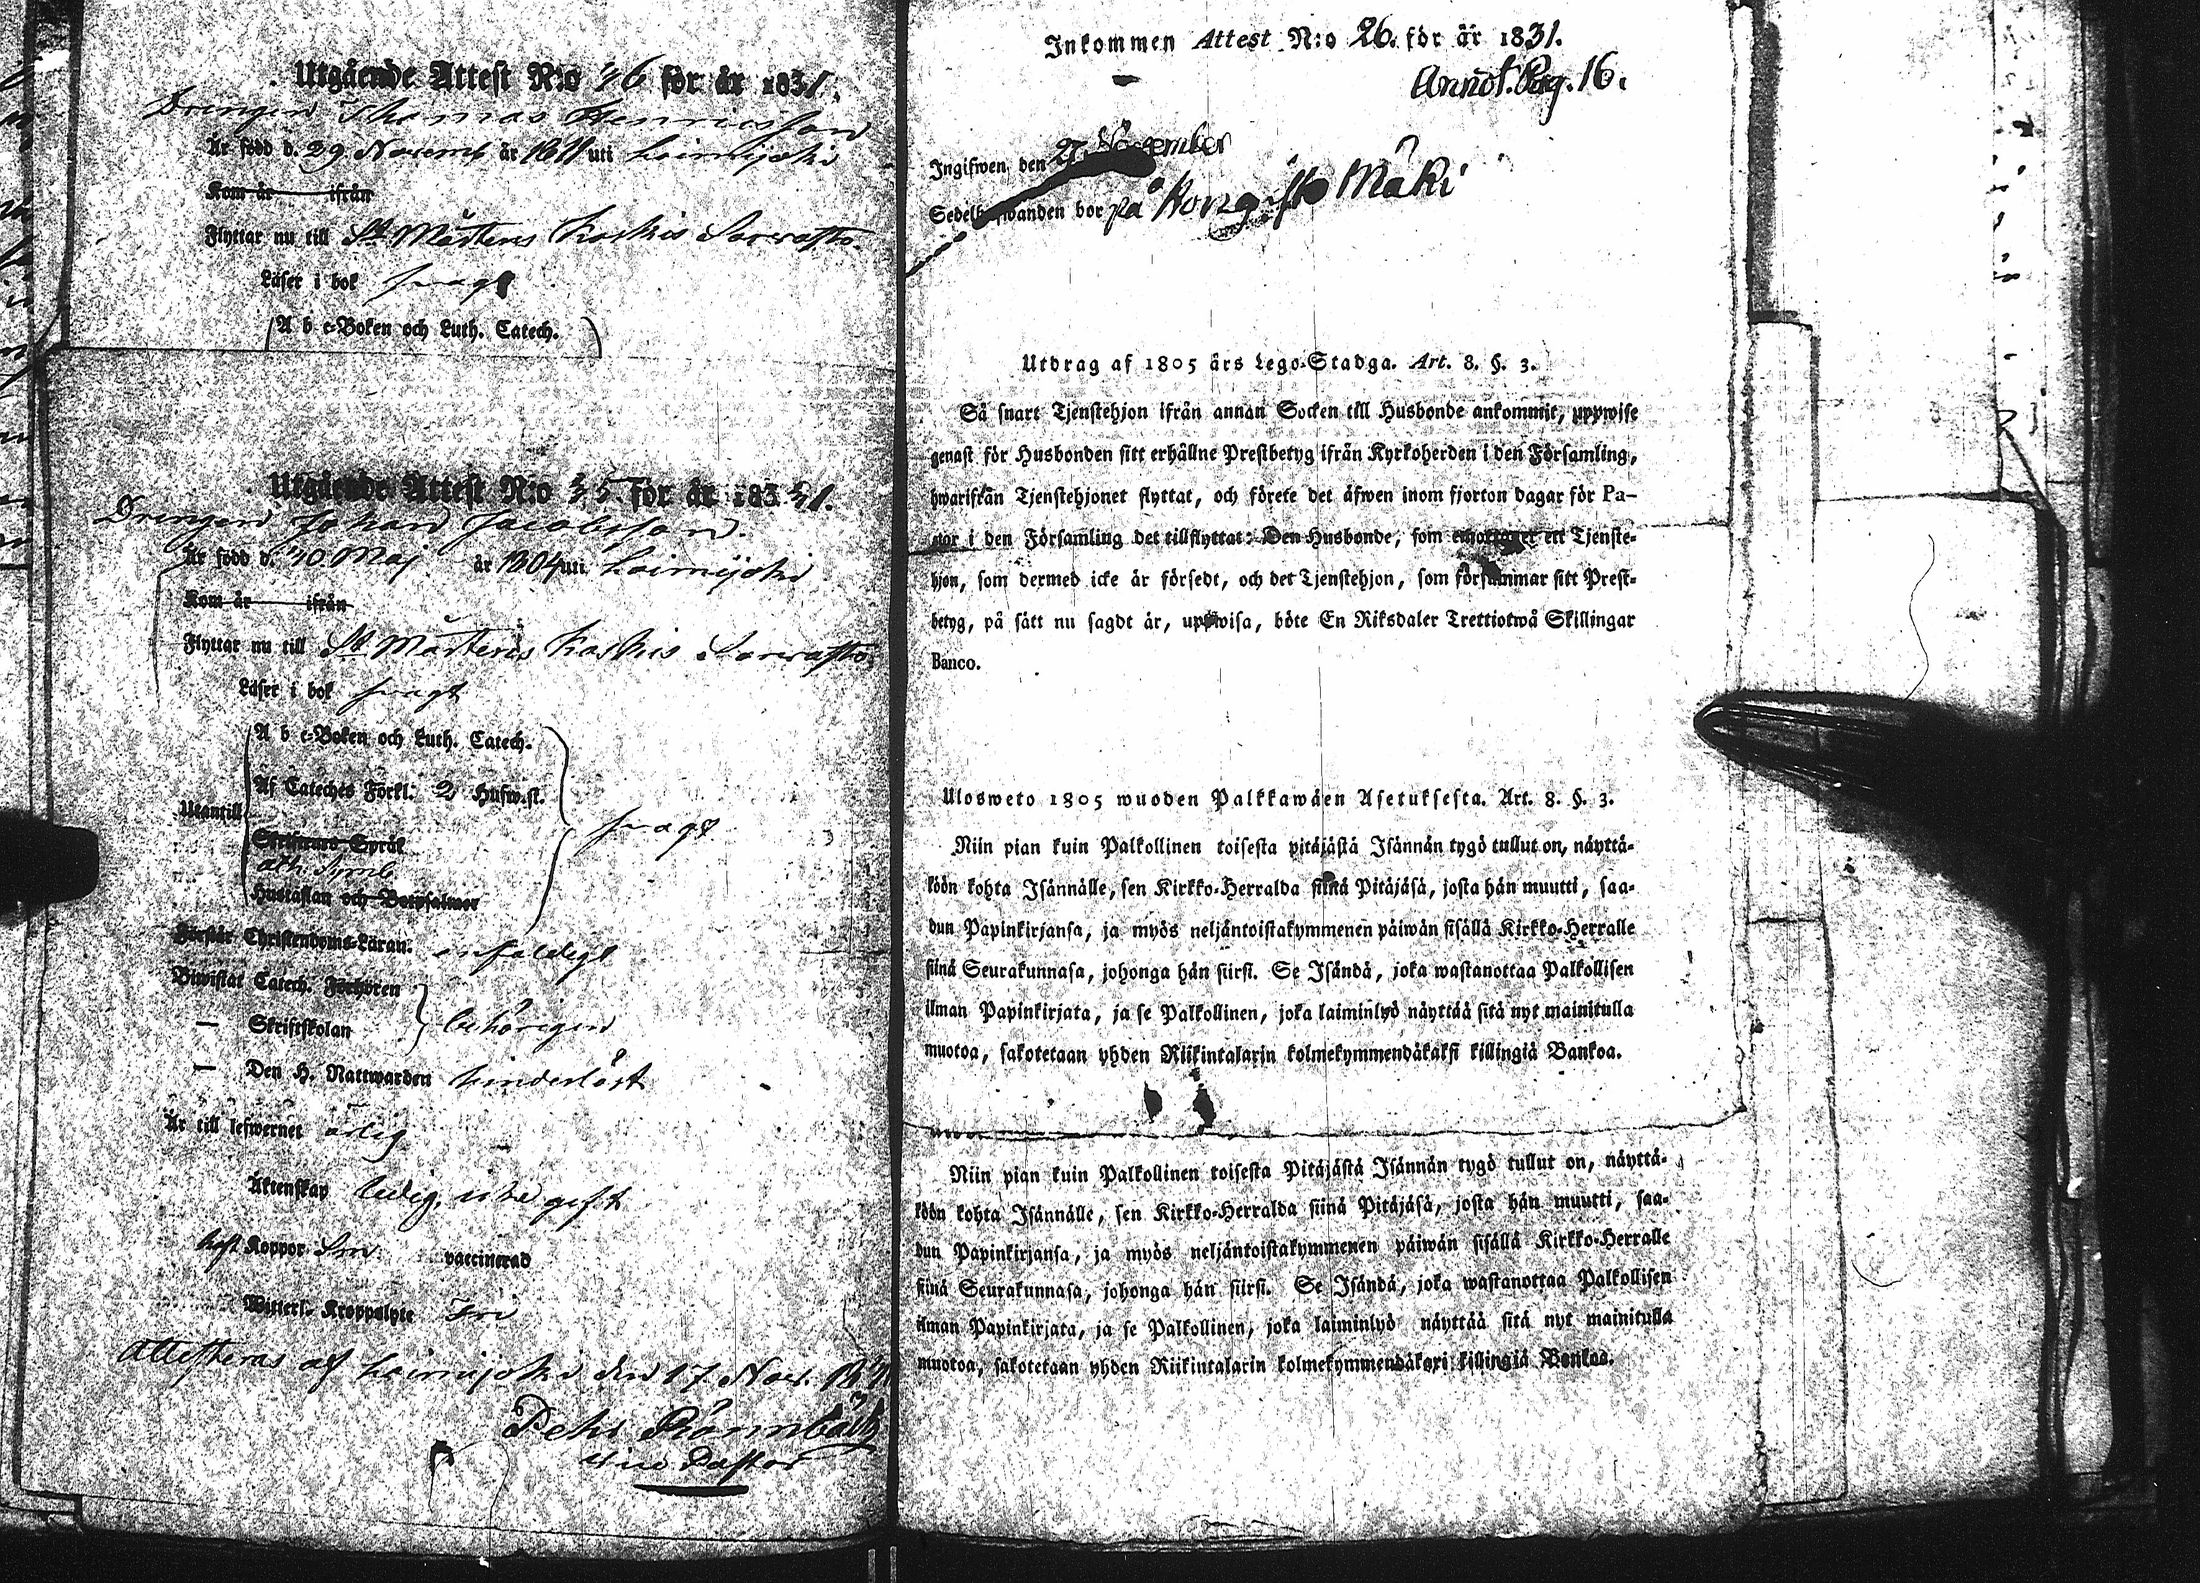 Utgående Attest N:o 46 för år 1831.
Drengen Thomas Henricsson
Är född d. 29 Novemb år 1811 uti Loimijoki
Kom år ifrån
Flyttar nu till St Mårtens Koskis Sorvasto
Läser i bok svagt
A b c-Boken och Luth. Catech.
Utgående Attest N:o 45 för år 1831.
Drengen Johan Jacobsson.
Är född d. 10 Maj år 1804 uti Loimijoki
Kom år ifrån
Flyttar nu till St Mårtens Koskis Sorvasto
Läser i bok svagt
A b c-Boken och Luth. Catech.
Af Cateches Förkl. 2 Hufw.st.
Utantill svagt
Skriftens Språk
ath. Symb.
Hustaflan och Botpsalmer
Förstår Christendoms-Läran. enfaldigt
Biwistat Catech. Förhören
— Skriftskolan behörigen
— Den H. Nattwarden hinderlöst
Är till lefwernet ärlig
Äktenskap ledig, icke gift
haft Koppor vaccinerad
Witterl. Kroppslyte Fri
Attesteras af Loimijoki den 17 Nov. 1831
Petr Rönnbäck
Vice Pastor
Inkommen Attest N:o 26. för år 1831.
Annot. Pag. 16.
Ingifwen den 27 November
Sedelhafwanden bor på Hongisto Mäki
Utdrag af 1805 års Lego-Stadga. Art. 8. §. 3.
Så snart Tjenstehjon ifrån annan Socken till Husbonde ankommit, uppwise
genast för Husbonden sitt erhållne Prestbetyg ifrån Kyrkoherden i den Församling,
hwarifrån Tjenstehjonet flyttat, och förete det äfwen inom fjorton dagar för Pa-
stor i den Församling det tillflyttat: Den Husbonde, som emottager ett Tjenste-
hjon, som dermed icke är försedt, och det Tjenstehjon, som försummar sitt Prest-
betyg, på sätt nu sagdt är, uppwisa, böte En Riksdaler Trettiotwå Skillingar
Banco.
Ulosweto 1805 wuoden Palkkawäen Asetuksesta. Art. 8. §. 3.
Niin pian kuin Palkollinen toisesta pitäjästä Isännän tygö tullut on, näyttä-
köön kohta Isännälle, sen Kirkko-Herralda siinä Pitäjäsä, josta hän muutti, saa-
dun Papinkirjansa, ja myös neljäntoistakymmenen päiwän sisällä Kirkko-Herralle
siinä Seurakunnasa, johonga hän siirsi. Se Isändä, joka wastanottaa Palkollisen
ilman Papinkirjata, ja se Palkollinen, joka laiminlyö näyttää sitä nyt mainitulla
muotoa, sakotetaan yhden Riikintalarin kolmekymmendäkaksi killingiä Bankoa.
Niin pian kuin Palkollinen toisesta Pitäjästä Isännän tygö tullut on, näyttä-
köön kohta Isännälle, sen Kirkko-Herralda siinä Pitäjäsä, josta hän muutti, saa-
dun Papinkirjansa, ja myös neljäntoistakymmenen päiwän sisällä Kirkko-Herralle
siinä Seurakunnasa, johonga hän siirsi. Se Isändä, joka wastanottaa Palkollisen
ilman Papinkirjata, ja se Palkollinen, joka laiminlyö näyttää sitä nyt mainitulla
muotoa, sakotetaan yhden Riikintalarin kolmekymmendäkaxi killingiä Bankoa.